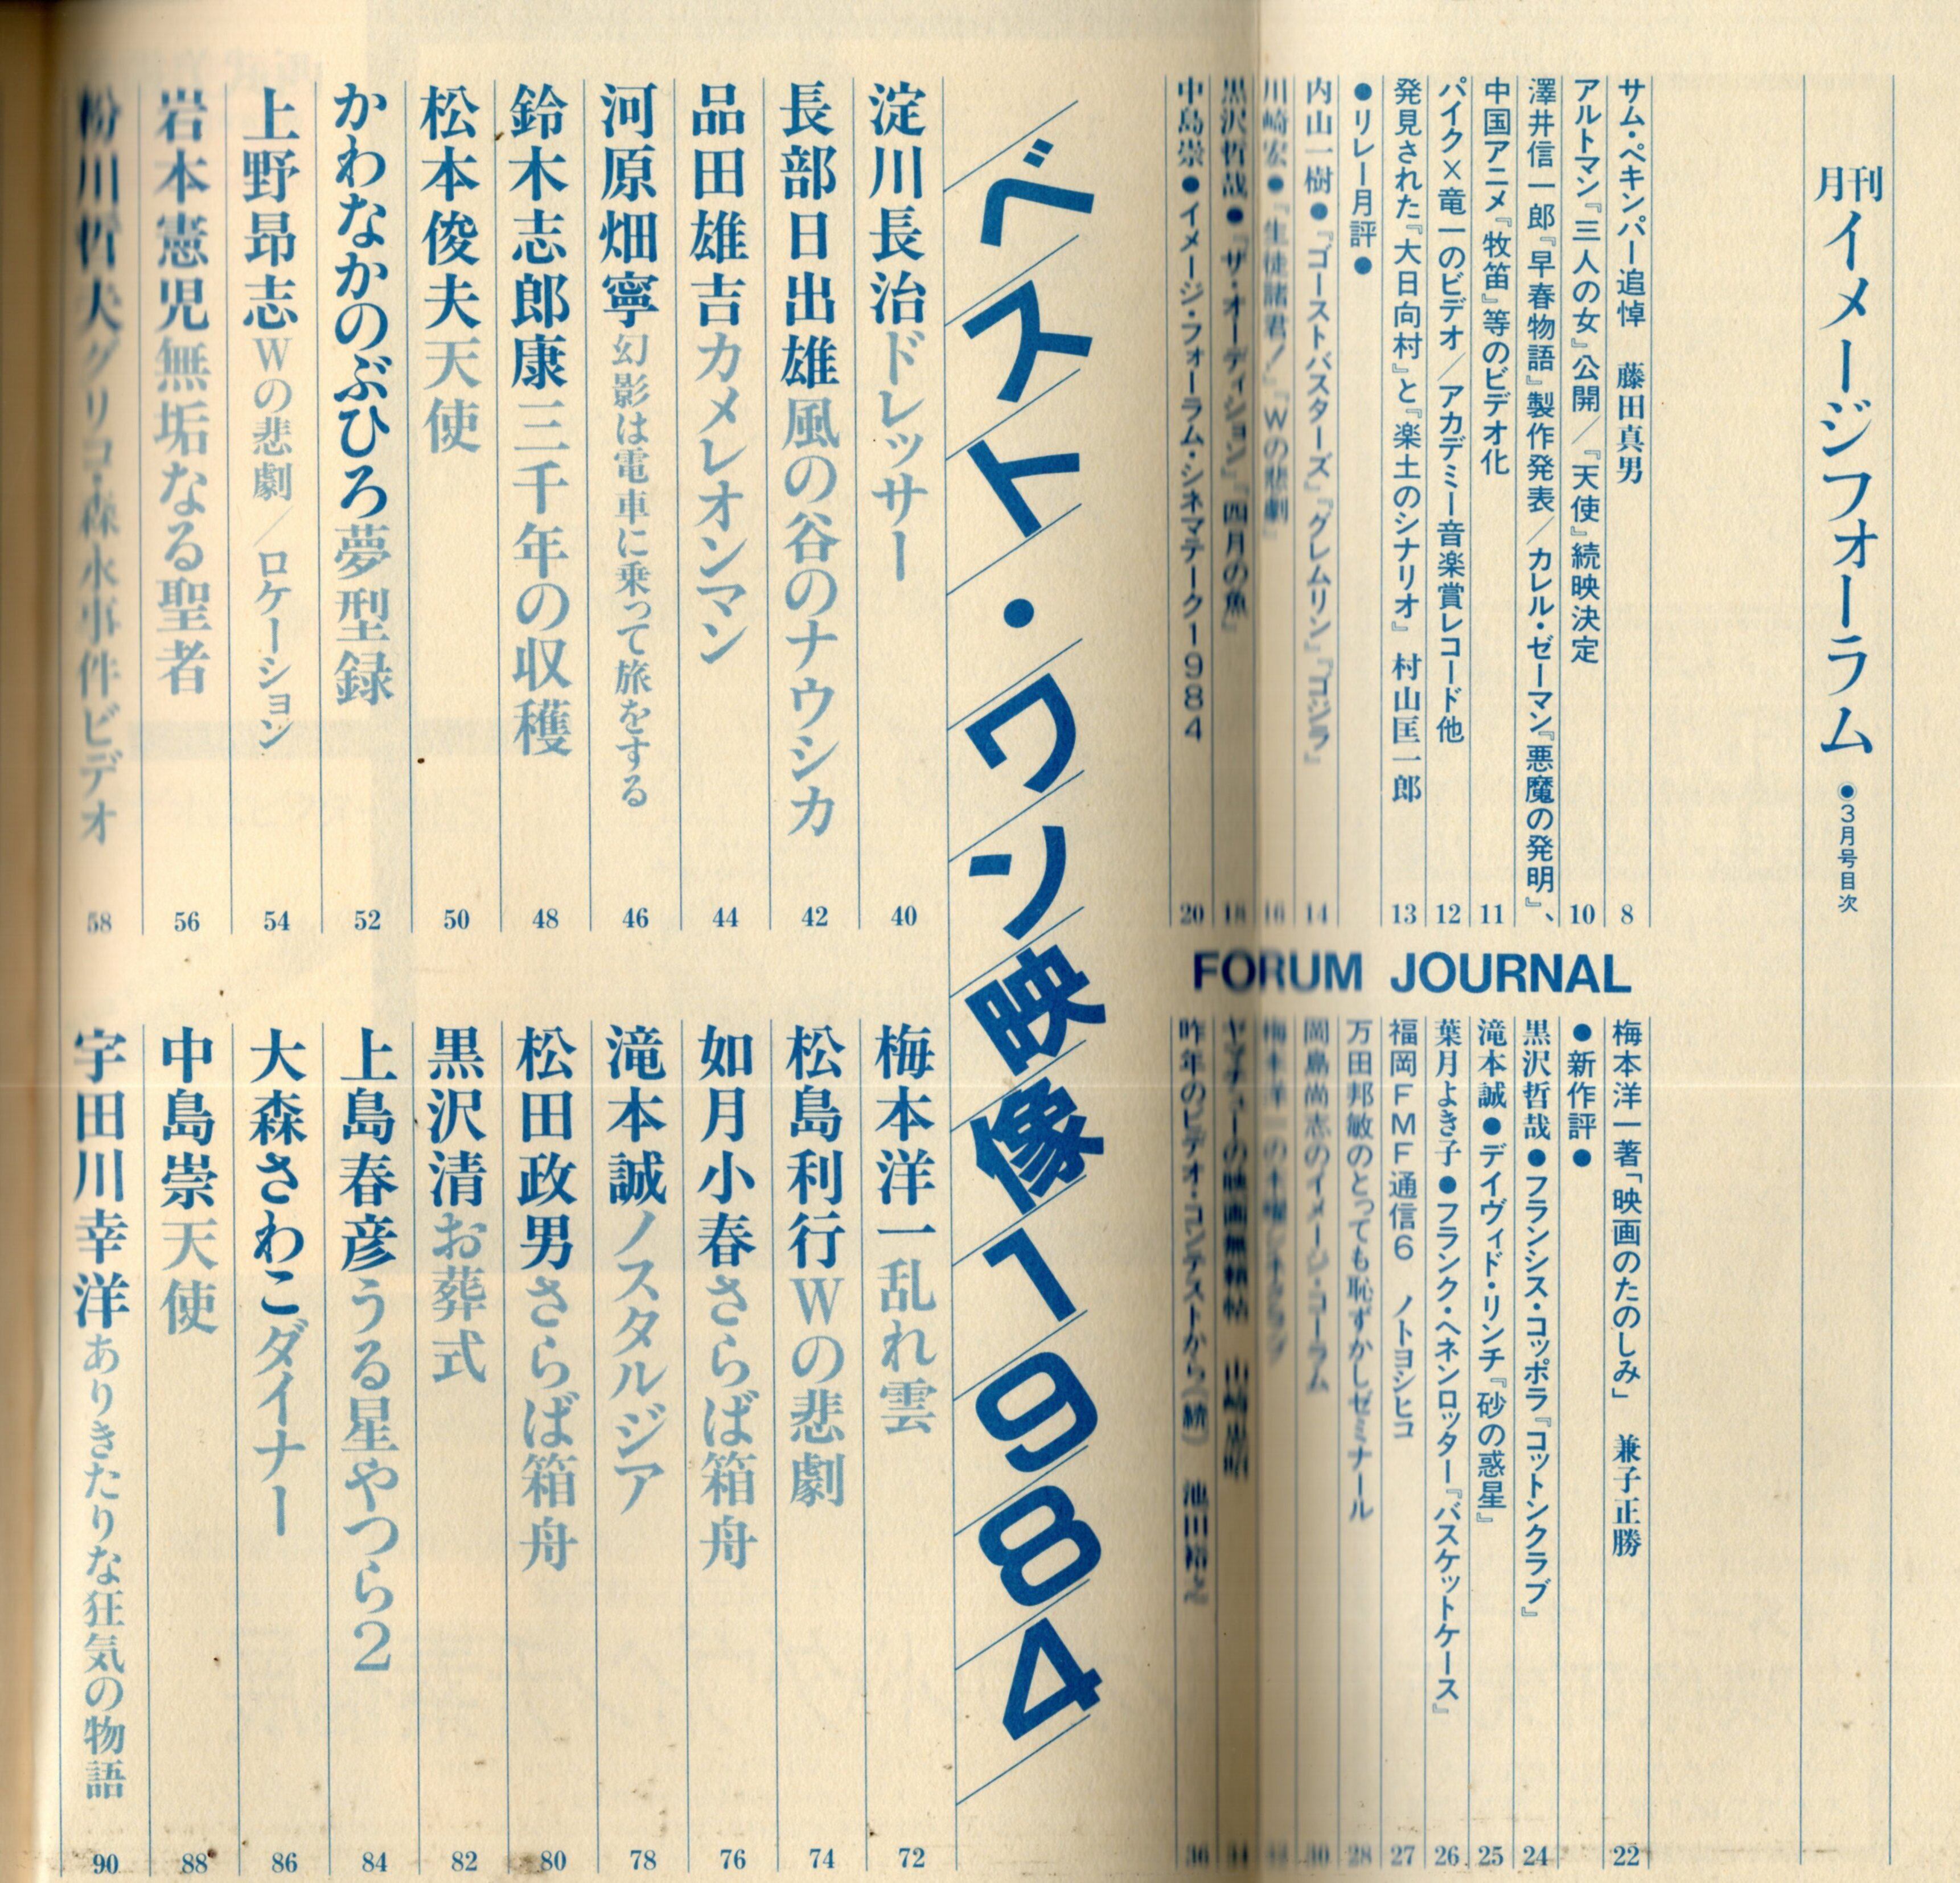 月刊イメージフォーラム ●3月号目次
サム・ペキンパー追悼 藤田真男 8
アルトマン『三人の女』公開／『天使』続映決定 10
澤井信一郎『早春物語』製作発表／カレル・ゼーマン『悪魔の発明』、
中国アニメ『牧笛』等のビデオ化 11
パイク×竜一のビデオ／アカデミー音楽賞レコード他 12
発見された『大日向村』と『楽土のシナリオ』 村山匡一郎 13
●リレー月評●
内山一樹●『ゴーストバスターズ』『グレムリン』『ゴジラ』 14
川崎宏●『生徒諸君！』『Wの悲劇』 16
黒沢哲哉●『ザ・オーディション』『四月の魚』 18
中島崇●イメージ・フォーラム・シネマテーク1984 20
FORUM JOURNAL
梅本洋一著「映画のたのしみ」 兼子正勝 22
●新作評●
黒沢哲哉●フランシス・コッポラ『コットンクラブ』 24
滝本誠●デイヴィド・リンチ『砂の惑星』 25
葉月よき子●フランク・ヘネンロッター『バスケットケース』 26
福岡FMF通信6 ノトヨシヒコ 27
万田邦敏のとっても恥ずかしゼミナール 28
岡島尚志のイメージ・コーラム 30
梅本洋一の
ヤマチューの映画無頼帖 山崎忠昭 34
昨年のビデオ・コンテストから（続） 池田裕之 36
ベスト・ワン映像1984
淀川長治 ドレッサー 40
長部日出雄 風の谷のナウシカ 42
品田雄吉 カメレオンマン 44
河原畑寧 幻影は電車に乗って旅をする 46
鈴木志郎康 三千年の収穫 48
松本俊夫 天使 50
かわなかのぶひろ 夢型録 52
上野昂志 Wの悲劇／ロケーション 54
岩本憲児 無垢なる聖者 56
粉川哲夫 グリコ・森永事件ビデオ 58
梅本洋一 乱れ雲 72
松島利行 Wの悲劇 74
如月小春 さらば箱舟 76
滝本誠 ノスタルジア 78
松田政男 さらば箱舟 80
黒沢清 お葬式 82
上島春彦 うる星やつら2 84
大森さわこ ダイナー 86
中島崇 天使 88
宇田川幸洋 ありきたりな狂気の物語 90